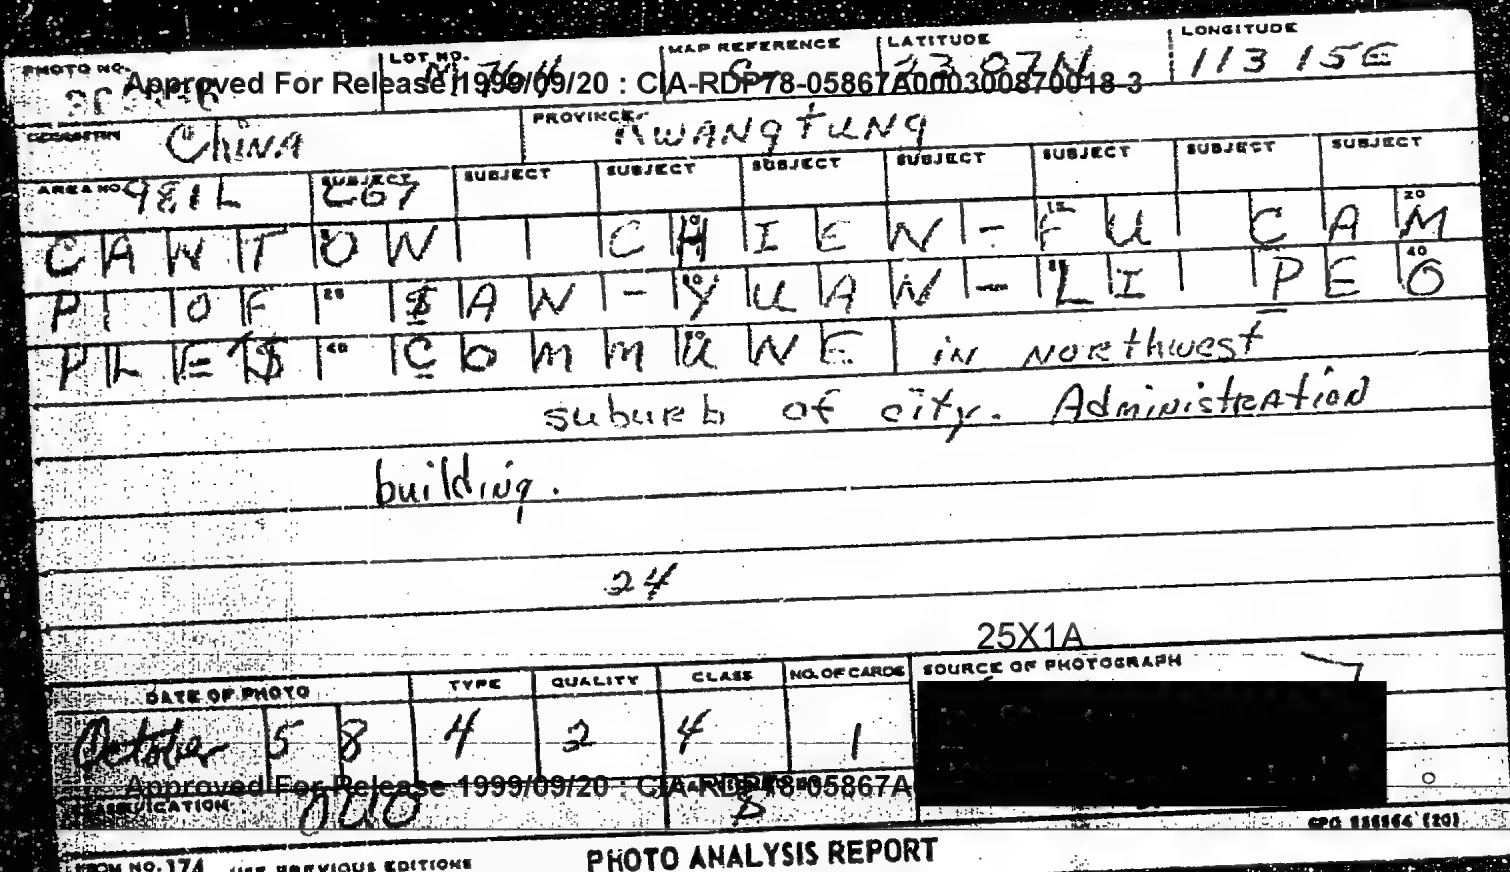 PHOTO NO. LOT NO. MAP REFERENCE LATITUDE LONGITUDE
23 07N 113 15E
Approved For Release 1999/09/20 : CIA-RDP78-05867A000300870018-3
China PROVINCE KWANGTUNG
AREA NO. 981L SUBJECT C67 SUBJECT SUBJECT SUBJECT SUBJECT SUBJECT SUBJECT SUBJECT
CANTON CHIEN-FU CAM
P OF SAN-YUAN-LI PEO
PLE'S COMMUNE in Northwest
suburb of city. Administration
building.
24
25X1A
DATE OF PHOTO TYPE QUALITY CLASS NO. OF CARDS SOURCE OF PHOTOGRAPH
October 58 4 2 4 1
Approved For Release 1999/09/20 : CIA-RDP78-05867A
CLASSIFICATION OUO 8
GPO (20)
FORM NO. 174 USE PREVIOUS EDITIONS PHOTO ANALYSIS REPORT